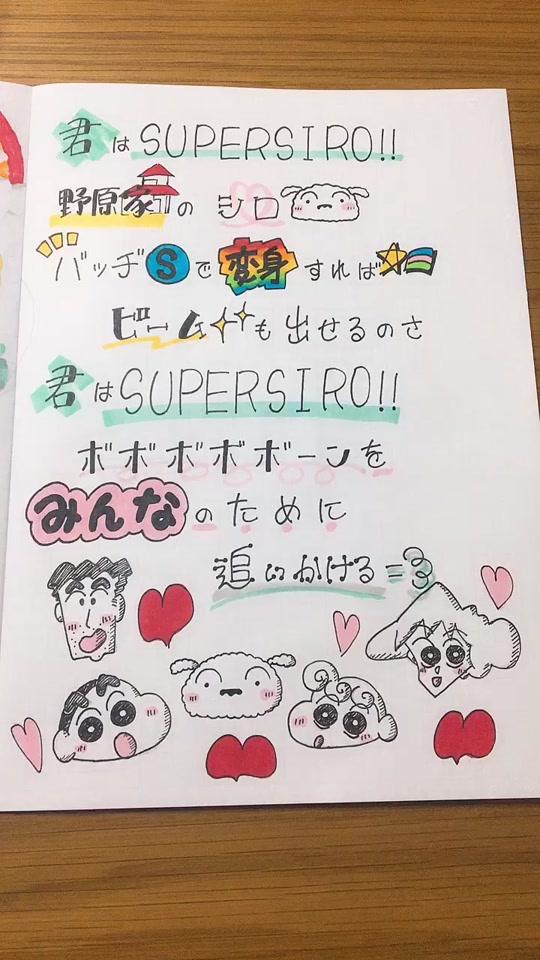 君はSUPERSIRO!!
野原家のシロ
バッヂSで変身すれば
ビームも出せるのさ
君はSUPERSIRO!!
ボボボボボーンを
みんなのために
追いかける